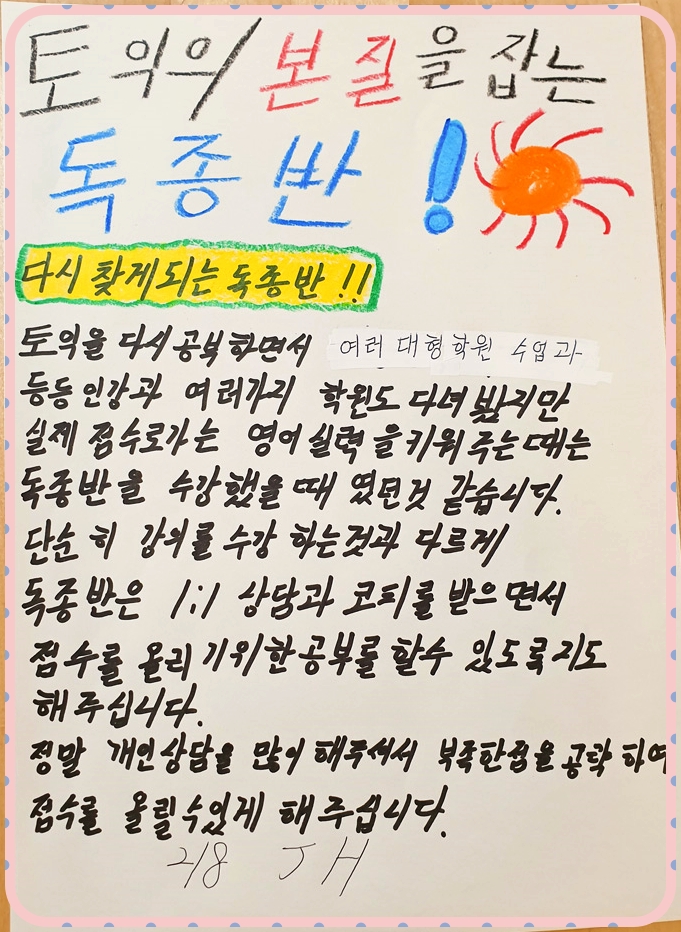 토익의 본질을 잡는
독종반!
다시 찾게되는 독종반!!
토익을 다시 공부하면서 여러 대형학원 수업과
등등 인강과 여러가지 학원도 다녀 봤지만
실제 점수로가는 영어 실력을 키워 주는 때는
독종반을 수강했을 때 였던것 같습니다.
단순히 강의를 수강 하는것과 다르게
독종반은 1:1 상담과 코티를 받으면서
점수를 올리기위한공부를 할수 있도록지도
해주십니다.
정말 개인상담을 많이 해주셔서 부족한점을 공략 하여
점수를 올릴수있게 해주십니다.
218 JH